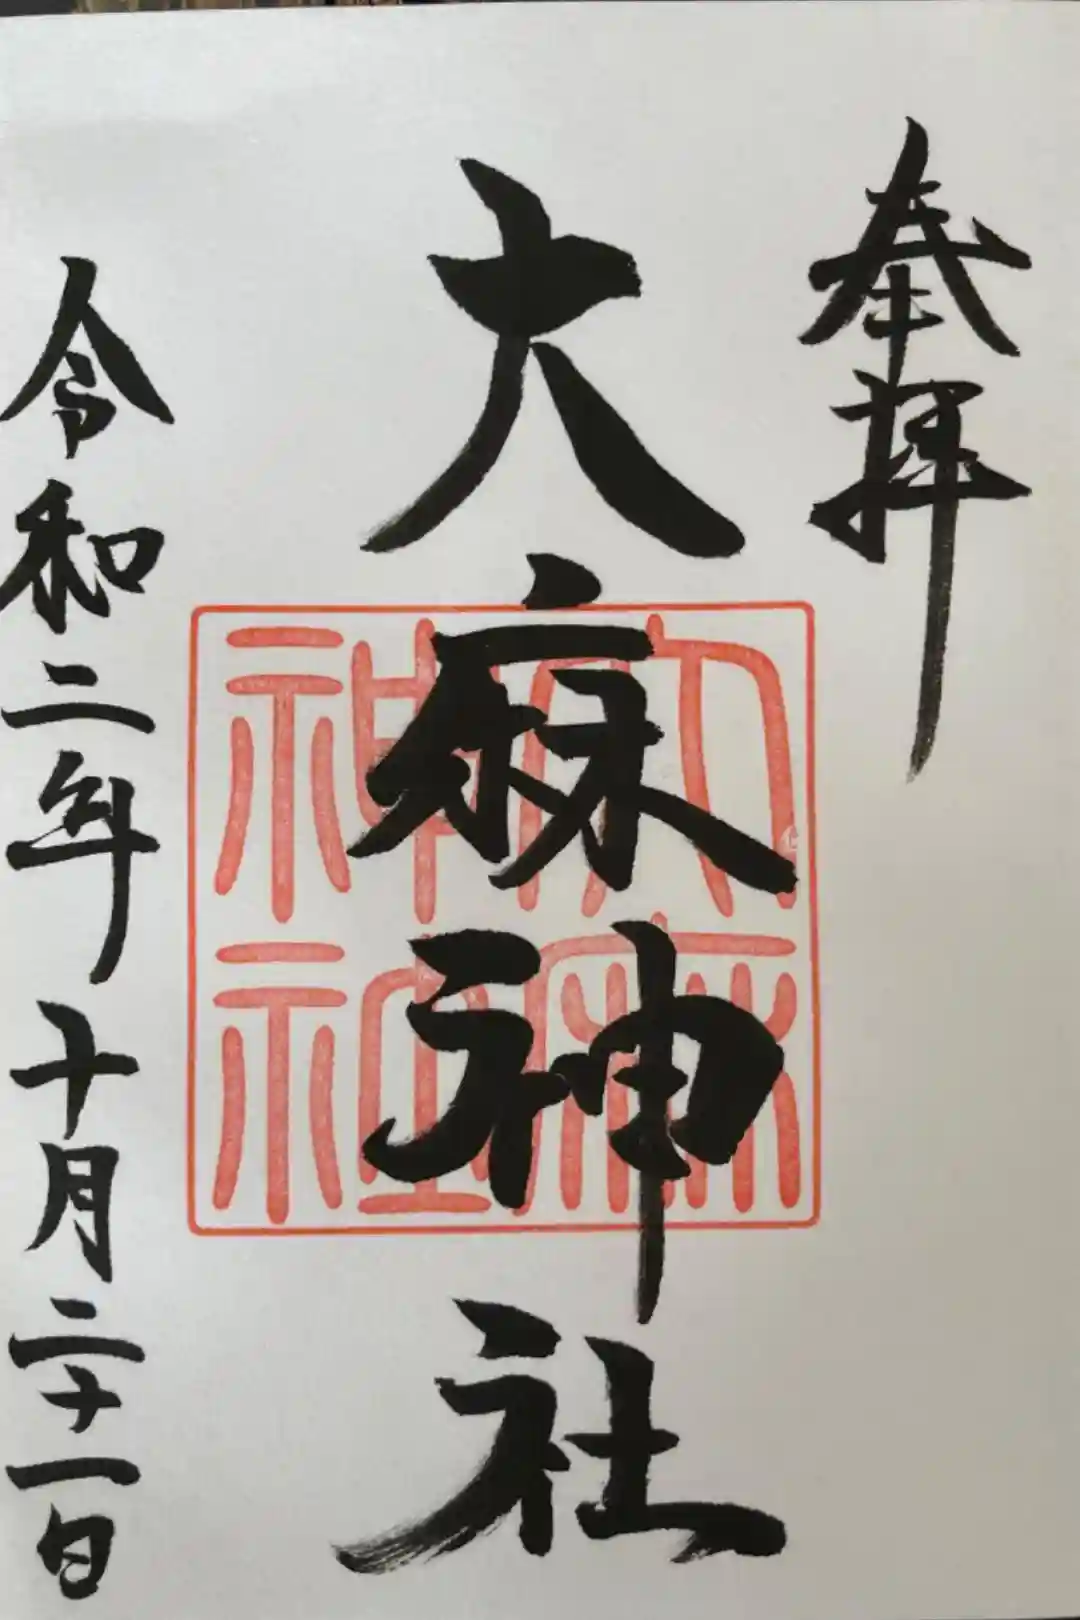 奉拝
大麻神社
大麻
神社
令和二年十月二十一日